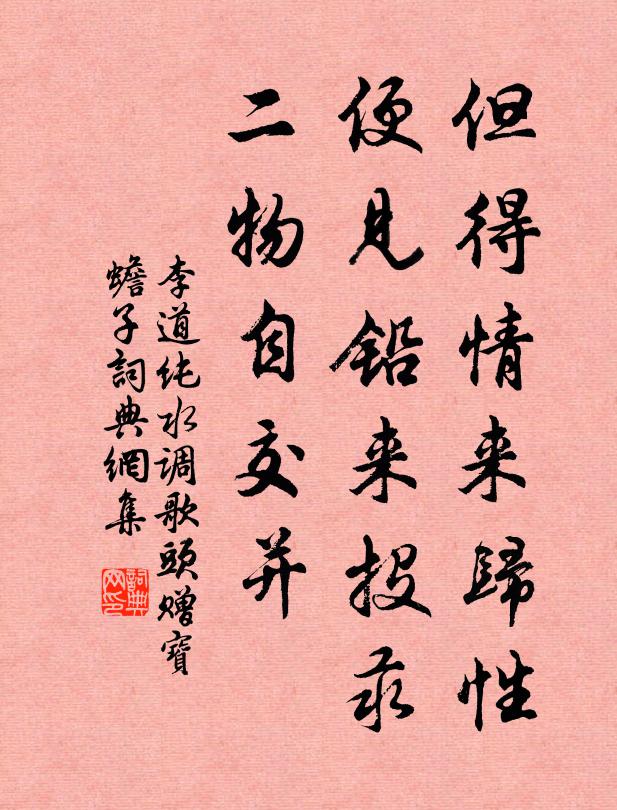 但得情来歸性
便見鉛来投汞
二物自交并
李道纯水调歌頭赠寶
蟾子詞典網集
詞典
网印